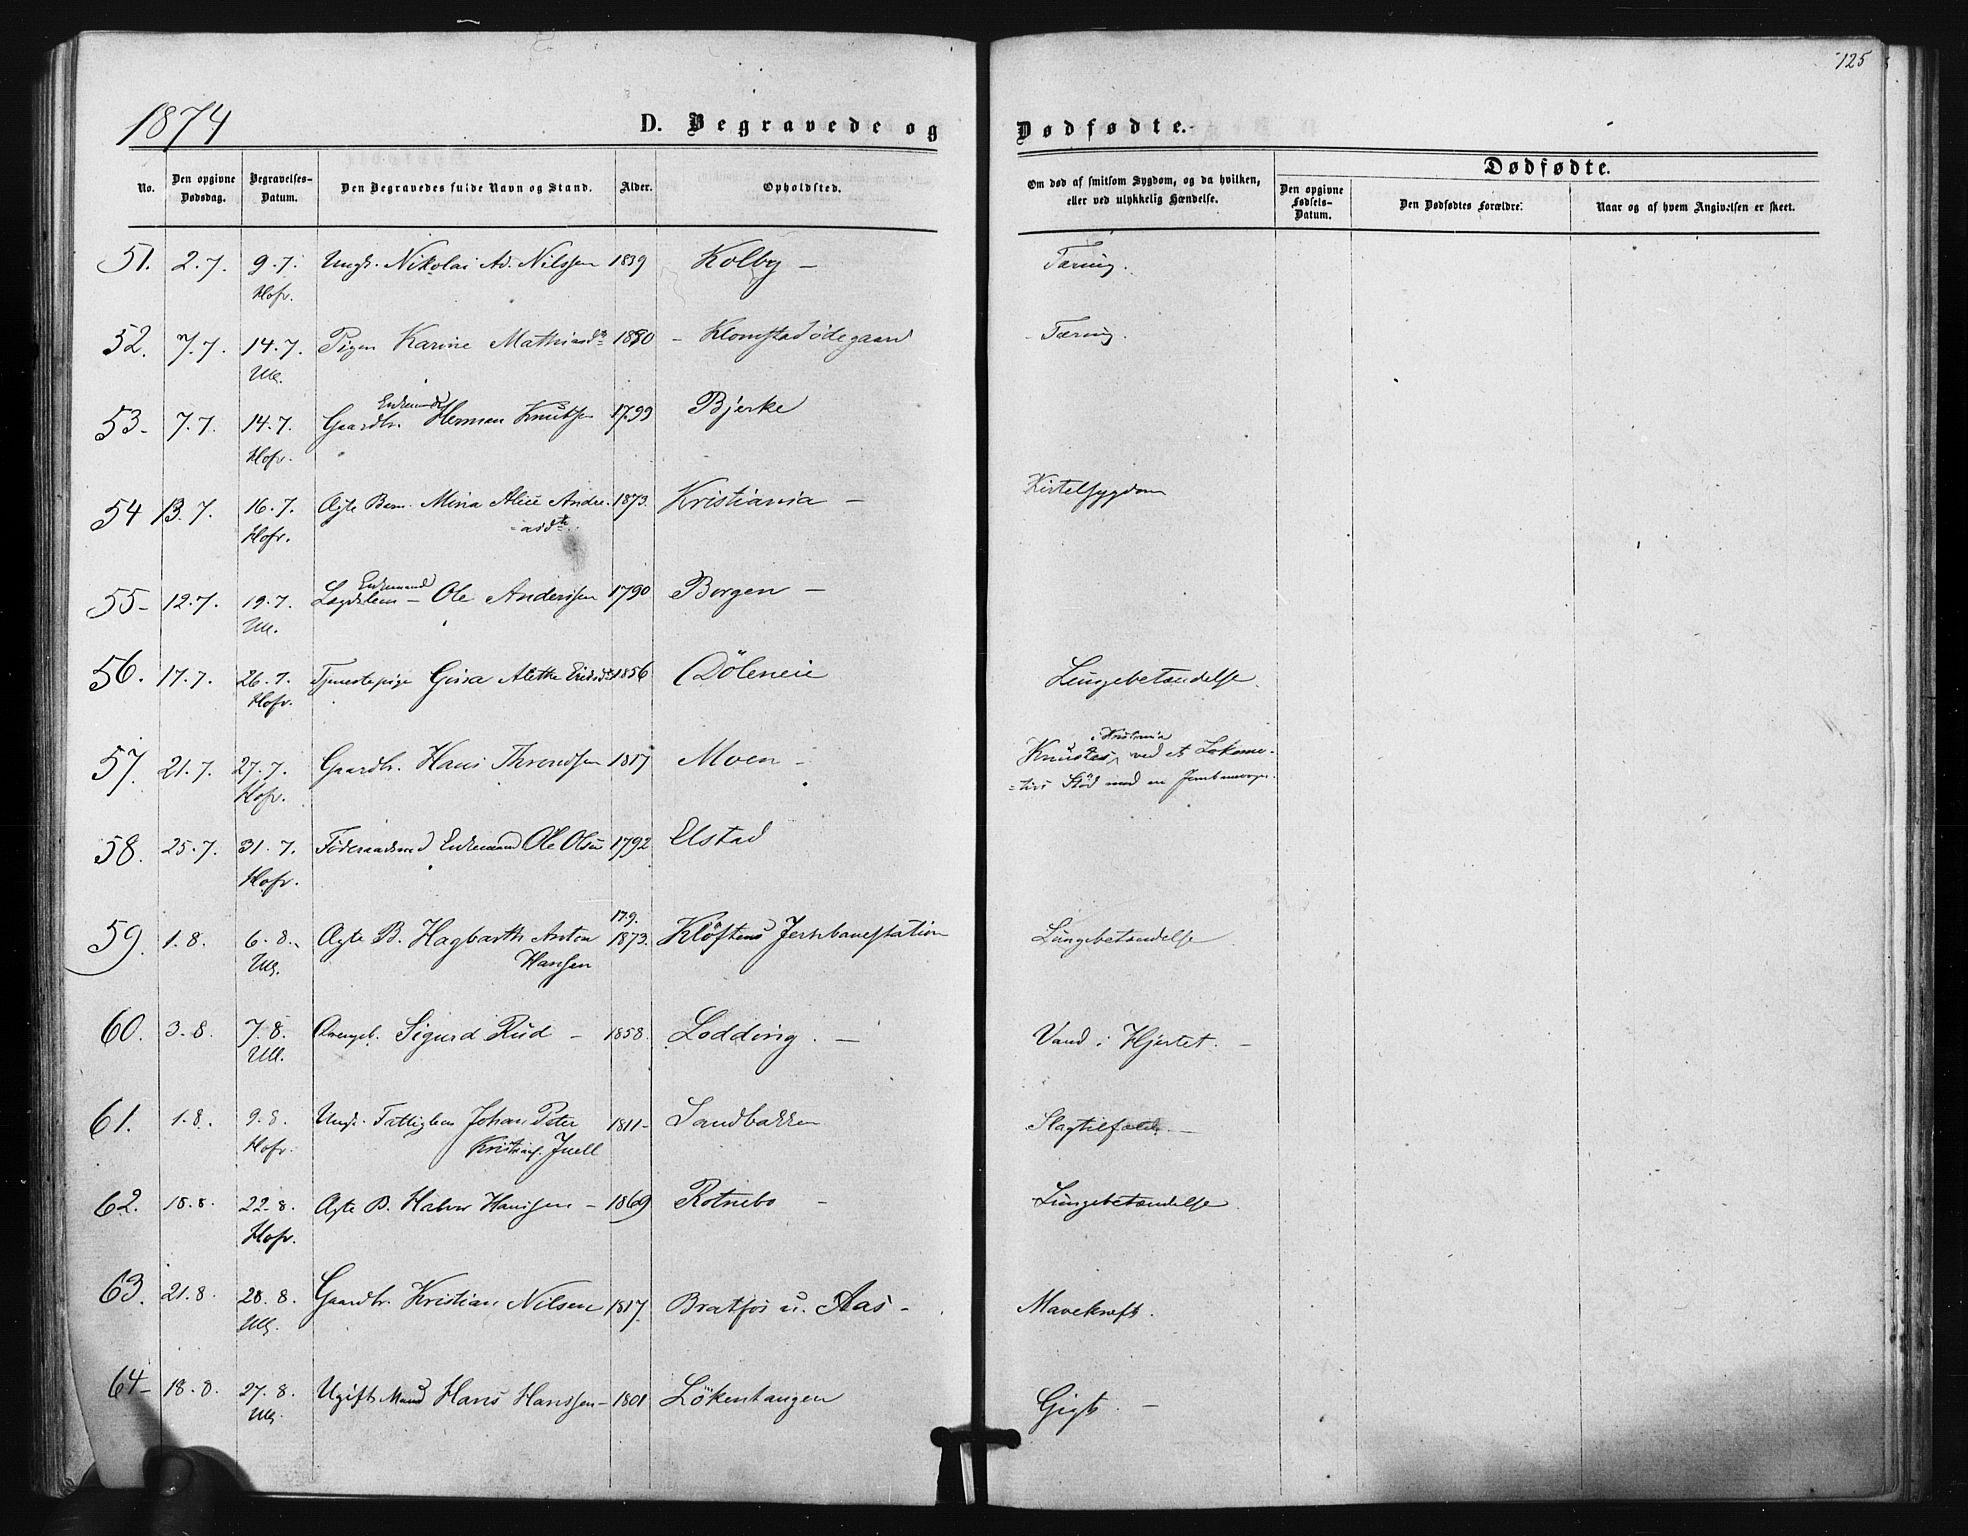 125
1874
D. Begravede og Dødfødte.
Dødfødte.
No.
Den opgivne Dødsdag.
Begravelses-Datum.
Den Begravedes fulde Navn og Stand.
Alder.
Opholdsted.
Om død af smitsom Sygdom, og da hvilken, eller ved ulykkelig Hændelse.
Den opgivne Fødsels-Datum.
Den Dødfødtes Forældre.
Naar og af hvem Angivelsen er skeet.
51. 2.7. 9.7. Ungk. Nikolai Ad. Nilssen 1839 Kolby – Tæring.
Hofr.
52. 7.7. 14.7. Pigen Karine Mathiasdtr 1830 – Klomstadødegaard Tæring.
Ull.
Enkemand
53- 7.7. 14.7. Gaardbr. Herman Knutsen 1799 Bjerke
Hofr.
54 13.7. 16.7. Ægte Barn Mina Alice Andre- 1873. Kristiania – Kirtelsygdom
Hofr. -asdtr.
Enkemand
55- 12.7. 19.7. Lægdslem – Ole Anderssen 1790 Borgen –
Ull.
56. 17.7. 26.7. Tjenestepige Gina Alethe Ericsdtr 1856 Døleneie Lungebetændelse.
Hofr.
i Kristiania
57. 21.7. 27.7. Gaardbr. Hans Throndsen 1817 Moen – Knustes ved et Lokomo-
Hofr. -tivs Stød med en Jernbanevogn.
58. 25.7. 31.7. Føderaadsmd Enkemand Ole Olsen 1792 Elstad
Hofr.
17.9.
59. 1.8. 6.8. Ægte B. Hagbarth Anton 1873. Kløftens Jernbanestation Lungebetændelse
Ull. Hansen
60. 3.8. 7.8. Sigurd Rud – 1858. Lodding. – Vand i Hjertet. –
Ull.
61. 1.8. 9.8. Ungk. Fattiglem Johan Peter 1811- Sandbakken Slagtilfælde. –
Hofr. Juell
62. 18.8. 22.8. Ægte B. Halvor Hanssen – 1869 Rotnebo – Lungebetændelse.
Hofr.
63. 21.8. 28.8. Gaardbr. Kristian Nilsen 1817. Bratfos u. Aas – Mavekræft.
Ull.
64- 18.8. 27.8. Ugift Mand Hans Hanssen – 1801 Løkentangen Gigt. –
Ull.